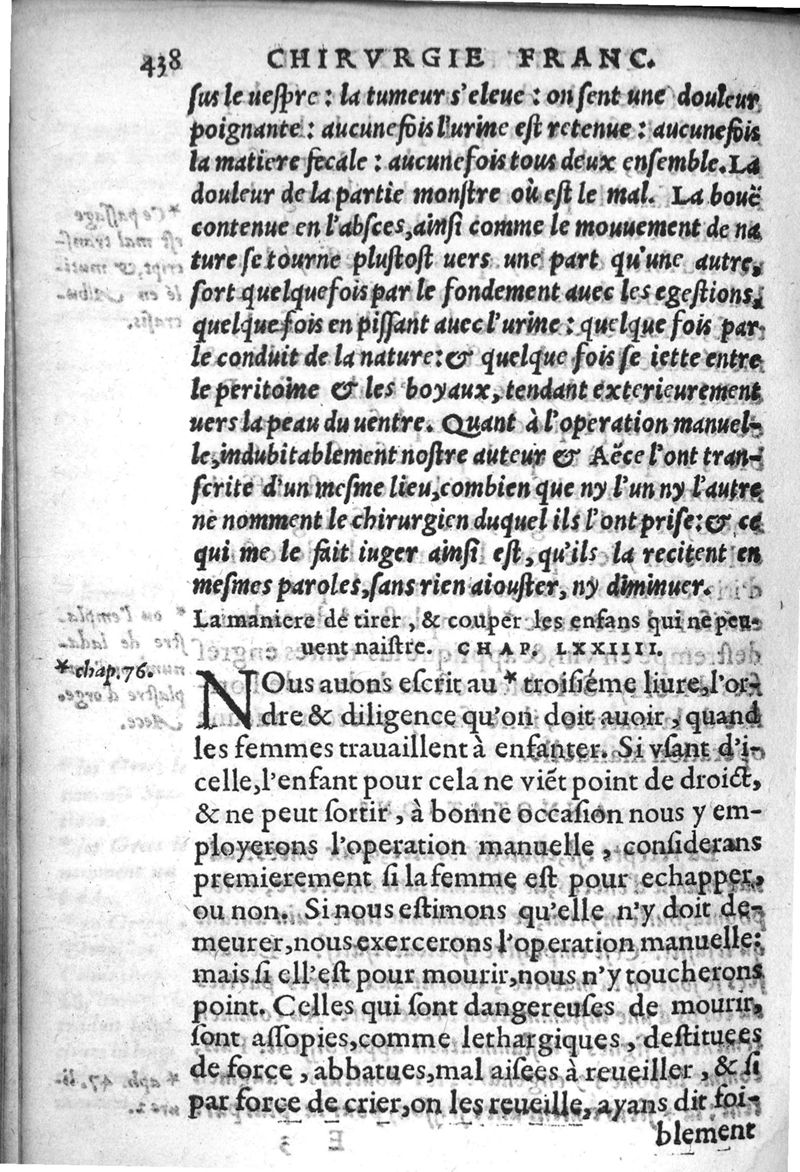 438 CHIRVRGIE FRANC.
sus le uespre : la tumeur s'eleue : on sent une douleur
poignante : aucunefois l'urine est retenue : aucunefois
la matiere fecale : aucunefois tous deux ensemble. La
douleur de la partie monstre où est le mal. La bouë
contenue en l'absces, ainsi comme le mouuement de na
ture se tourne plustost uers une part qu'une autre,
sort quelquefois par le fondement auec les egestions,
quelquefois en pissant auec l'urine : quelque fois par
le conduit de la nature: & quelque fois se iette entre
le peritoine & les boyaux, tendant exterieurement
uers la peau du uentre. Quant à l'operation manuel-
le, indubitablement nostre auteur & Aëce l'ont tran-
scrite d'un mesme lieu, combien que ny l'un ny l'autre
ne nomment le chirurgien duquel ils l'ont prise: & ce
qui me le fait iuger ainsi est, qu'ils la recitent en
mesmes paroles, sans rien aiouster, ny diminuer.
La maniere de tirer, & couper les enfans qui ne peu-
uent naistre. CHAP. LXXIIII.
* chap. 76.
NOus auons escrit au * troisiéme liure, l'or-
dre & diligence qu'on doit auoir, quand
les femmes trauaillent à enfanter. Si vsant d'i-
celle, l'enfant pour cela ne viẽt point de droict,
& ne peut sortir, à bonne occasion nous y em-
ployerons l'operation manuelle, considerans
premierement si la femme est pour echapper,
ou non. Si nous estimons qu'elle n'y doit de-
meurer, nous exercerons l'operation manuelle:
mais si ell'est pour mourir, nous n'y toucherons
point. Celles qui sont dangereuses de mourir,
sont assopies, comme lethargiques, destituees
de force, abbatues, mal aisees à reueiller, & si
par force de crier, on les reueille, ayans dit foi-
blement